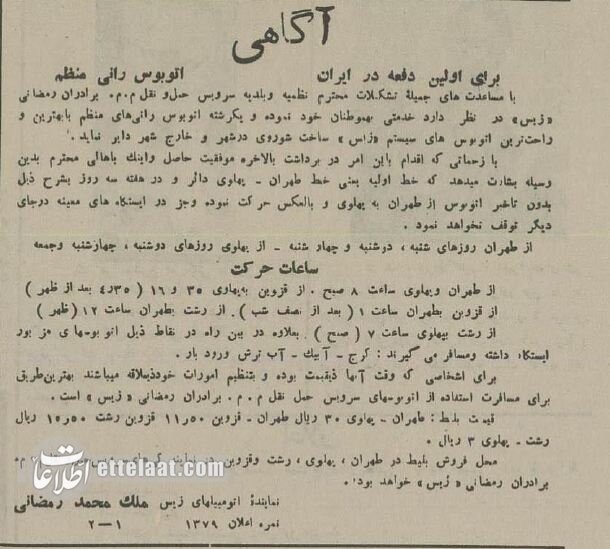 آگاهی
برای اولین دفعه در ایران اتوبوس رانی منظم
با مساعدت های جمیلهٔ تشکیلات محترم نظمیه وبلدیه سرویس حمل و نقل م.م. برادران رمضانی
«زیس» در نظر دارد خدمتی بهموطنان خود نموده و یکرشته اتوبوس رانی‌های منظم بابهترین و
راحت‌ترین اتوبوس های سیستم «زاس» ساخت شوروی درشهر و خارج شهر دایر نماید.
با زحماتی که اقدام باین امر در برداشت بالاخره موفقیت حاصل واینك باهالی محترم بدین
وسیله بشارت میدهد که خط اولیه یعنی خط طهران - پهلوی دائر و در هفته سه روز بشرح ذیل
بدون تاخیر اتوبوس از طهران به پهلوی و بالعکس حرکت نموده وجز در ایستگاه های معینه درجای
دیگر توقف نخواهد نمود.
از طهران روزهای شنبه، دوشنبه و چهار شنبه - از پهلوی روزهای دوشنبه، چهارشنبه وجمعه
ساعات حرکت
از طهران وپهلوی ساعت ۸ صبح. از قزوین به‌پهلوی ۳۵ و ۱۶ (۴٫۳۵ بعد از ظهر)
از قزوین بطهران ساعت ۱ (بعد از نصف شب). از رشت بطهران ساعت ۱۲ (ظهر)
از رشت بپهلوی ساعت ۷ (صبح). بعلاوه در بین راه در نقاط ذیل اتوبوسهای مزبور
ایستگاه داشته ومسافر می گیرند: کرج - آبیك - آب ترش ورود بار.
برای اشخاصی که وقت آنها ذیقیمت بوده و بتنظیم امورات خودذیعلاقه میباشند بهترین‌طریق
برای مسافرت استفاده از اتوبوسهای سرویس حمل نقل م.م. برادران رمضانی «زیس» است.
قیمت بلیط: طهران - پهلوی ۳۰ ریال طهران - قزوین ۱۱٫۵۰ قزوین رشت ۱۵٫۵۰ ریال
رشت - پهلوی ۳ ریال.
محل فروش بلیط در طهران، پهلوی، رشت وقزوین در م.
برادران رمضانی «زیس» خواهد بود.
نمایندهٔ اتومبیلهای زیس ملك محمد رمضانی
نمره اعلان ۱۳۷۹ ۱-۲
اطلاعات ettelaat.com